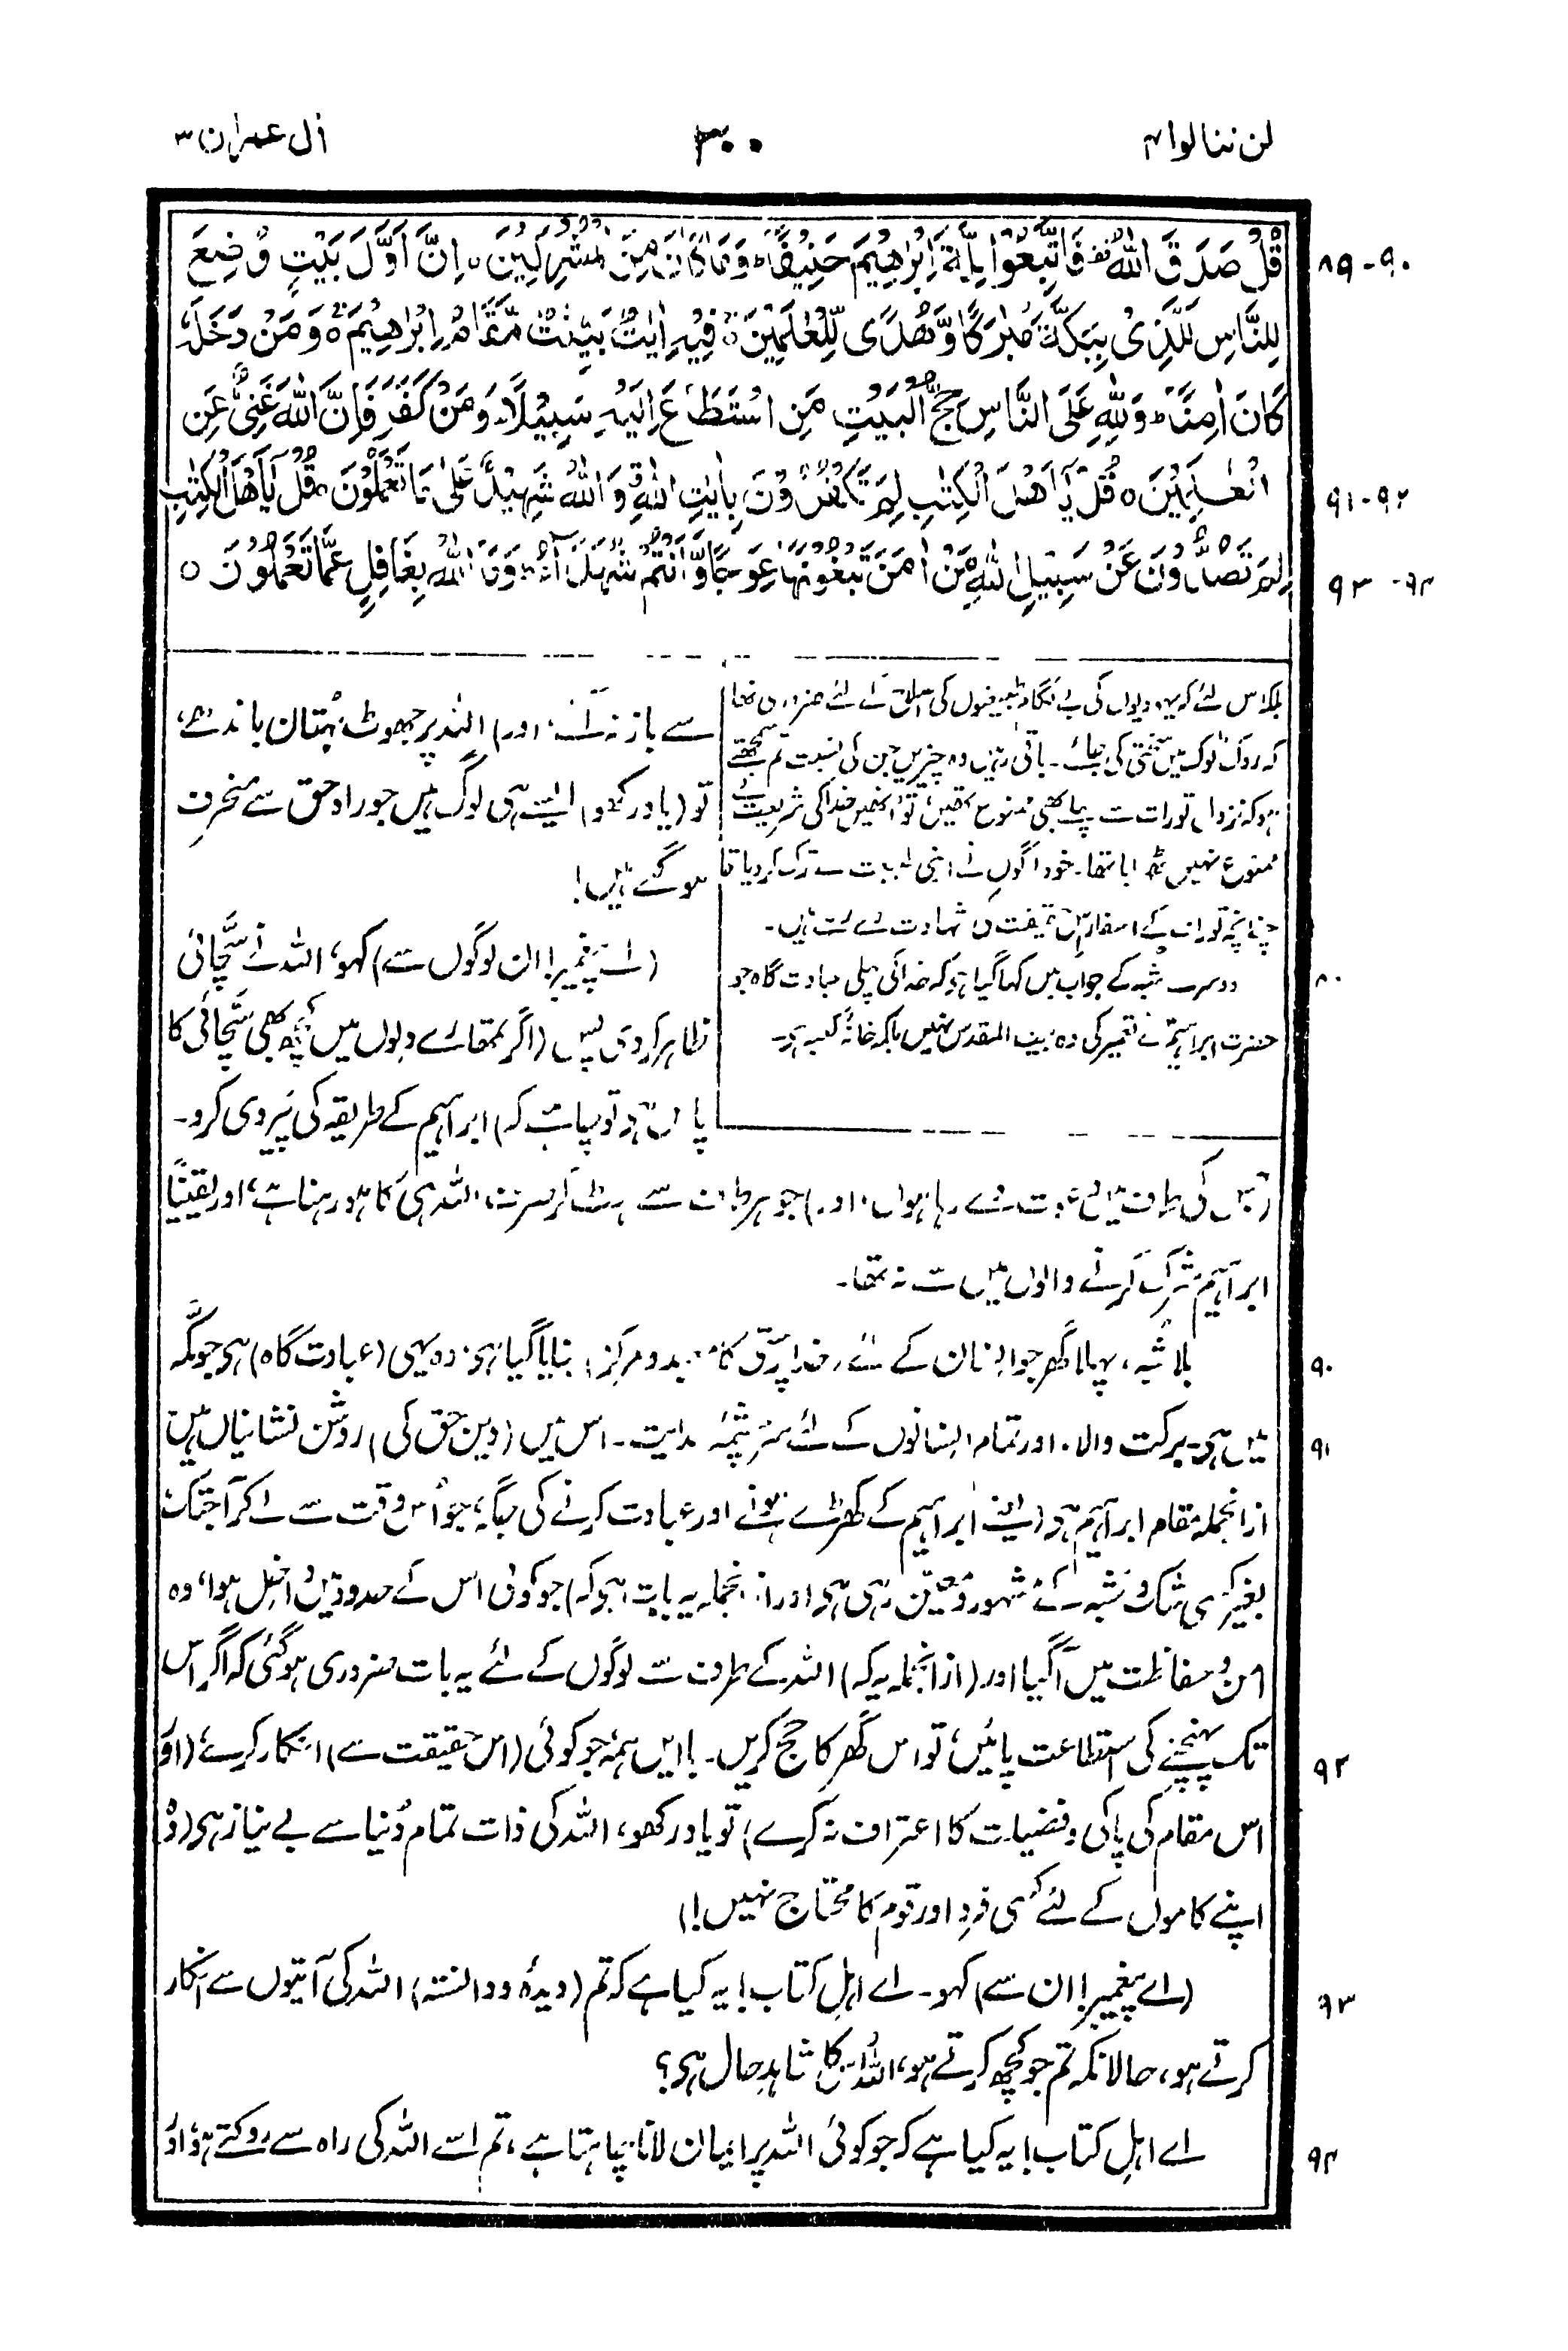 لن تنالوا ۴
۳۰۰
اٰل عمران ۳
قُلْ صَدَقَ اللّٰهُ فَاتَّبِعُوْا مِلَّةَ اِبْرٰهِيْمَ حَنِيْفًا ؕ وَمَا كَانَ مِنَ الْمُشْرِكِيْنَ ۝ اِنَّ اَوَّلَ بَيْتٍ وُّضِعَ
۸۹-۹۰
لِلنَّاسِ لَلَّذِىْ بِبَكَّةَ مُبٰرَكًا وَّهُدًى لِّلْعٰلَمِيْنَ ۝ فِيْهِ اٰيٰتٌ بَيِّنٰتٌ مَّقَامُ اِبْرٰهِيْمَ ۚ وَمَنْ دَخَلَهٗ
كَانَ اٰمِنًا ؕ وَلِلّٰهِ عَلَى النَّاسِ حِجُّ الْبَيْتِ مَنِ اسْتَطَاعَ اِلَيْهِ سَبِيْلًا ؕ وَمَنْ كَفَرَ فَاِنَّ اللّٰهَ غَنِىٌّ عَنِ
الْعٰلَمِيْنَ ۝ قُلْ يٰٓاَهْلَ الْكِتٰبِ لِمَ تَكْفُرُوْنَ بِاٰيٰتِ اللّٰهِ وَاللّٰهُ شَهِيْدٌ عَلٰى مَا تَعْمَلُوْنَ ۝ قُلْ يٰٓاَهْلَ الْكِتٰبِ
۹۱-۹۲
لِمَ تَصُدُّوْنَ عَنْ سَبِيْلِ اللّٰهِ مَنْ اٰمَنَ تَبْغُوْنَهَا عِوَجًا وَّاَنْتُمْ شُهَدَآءُ ؕ وَمَا اللّٰهُ بِغَافِلٍ عَمَّا تَعْمَلُوْنَ ۝
۹۳-۹۴
بلکہ اس لئے کہ یہودیوں کی بے لگام طبیعتوں کی اصلاح کے لئے ضروری تھا
کہ روک ٹوک میں سختی کی جائے۔ باقی رہیں وہ چیزیں جن کی نسبت تم سمجھتے
ہو کہ نزول تورات سے پہلے بھی ممنوع تھیں، تو اُنھیں خدا کی شریعت نے
ممنوع نہیں ٹھہرایا تھا۔ خود لوگوں نے اپنی طبیعت سے ترک کردیا تھا
چنانچہ تورات کے اسفار اس حقیقت کی شہادت دے رہے ہیں۔
دوسرے شبہ کے جواب میں کہا گیا ہو کہ خدا کی پہلی عبادت گاہ جو
حضرت ابراہیم نے تعمیر کی وہ بیت المقدس نہیں بلکہ خانۂ کعبہ ہو۔
سے باز نہ آئے، اور) اللہ پر جھوٹ بہتان باندھے،
تو (یاد رکھو) ایسے ہی لوگ ہیں جو راہ حق سے منحرف
ہوگئے ہیں!
(اے پیغمبر! ان لوگوں سے) کہو، اللہ نے سچائی
ظاہر کردی پس (اگر تمھارے دلوں میں کچھ بھی سچائی کا
پاس ہو تو چاہیے کہ) ابراہیم کے طریقہ کی پیروی کرو۔
(جس کی طرف میں دعوت دے رہا ہوں، اور) جو ہر طرف سے ہٹ کر صرف اللہ ہی کا ہو رہنا ہے، اور یقیناً
ابراہیم شرک کرنے والوں میں سے نہ تھا۔
بلا شبہ، پہلا گھر جو انسان کے لئے (خدا پرستی کا معبد و مرکز) بنایا گیا ہو، وہ یہی (عبادت گاہ) ہو جو مکّہ
۹۰
میں ہو۔ برکت والا، اور تمام انسانوں کے لئے سرچشمۂ ہدایت۔ اس میں (دین حق کی) روشن نشانیاں ہیں
۹۱
ازانجملہ مقام ابراہیم ہو (یعنے ابراہیم کے کھڑے ہونے اور عبادت کرنے کی جگہ، جو اُس وقت سے لے کر آجتک
بغیر کسی شک و شبہ کے مشہور و معین رہی ہو اور ازانجملہ یہ بات ہو کہ) جو کوئی اس کے حدود میں داخل ہوا، وہ
امن و حفاظت میں آگیا اور (ازانجملہ یہ کہ) اللہ کے طرف سے لوگوں کے لئے یہ بات ضروری ہوگئی کہ اگر اس
تک پہنچنے کی استطاعت پائیں، تو اس گھر کا حج کریں۔ با ایں ہمہ جو کوئی (اس حقیقت سے) انکار کرے (اور
۹۲
اس مقام کی پاکی و فضیلت کا اعتراف نہ کرے) تو یاد رکھو، اللہ کی ذات تمام دُنیا سے بے نیاز ہو (وہ
اپنے کاموں کے لئے کسی فرد اور قوم کا محتاج نہیں!)
(اے پیغمبر! ان سے) کہو۔ اے اہلِ کتاب! یہ کیا ہے کہ تم (دیدہ و دانستہ) اللہ کی آیتوں سے انکار
۹۳
کرتے ہو، حالانکہ تم جو کچھ کرتے ہو، اللہ اس کا شاہد حال ہو؟
اے اہلِ کتاب! یہ کیا ہے کہ جو کوئی اللہ پر ایمان لانا چاہتا ہے، تم اسے اللہ کی راہ سے روکتے ہو، اور
۹۴